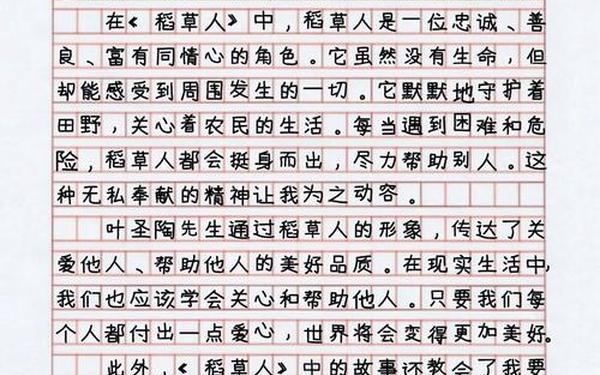 在《稻草人》中，稻草人是一位忠诚、善
良、富有同情心的角色。它虽然没有生命，但
却能感受到周围发生的一切。它默默地守护着
田野，关心着农民的生活。每当遇到困难和危
险，稻草人都会挺身而出，尽力帮助别人。这
种无私奉献的精神让我为之动容。
叶圣陶先生通过稻草人的形象，传达了关
爱他人、帮助他人的美好品质。在现实生活中，
我们也应该学会关心和帮助他人。只要我们每
个人都付出一点爱心，世界将会变得更加美好。
此外，《稻草人》中的故事还教会了我要